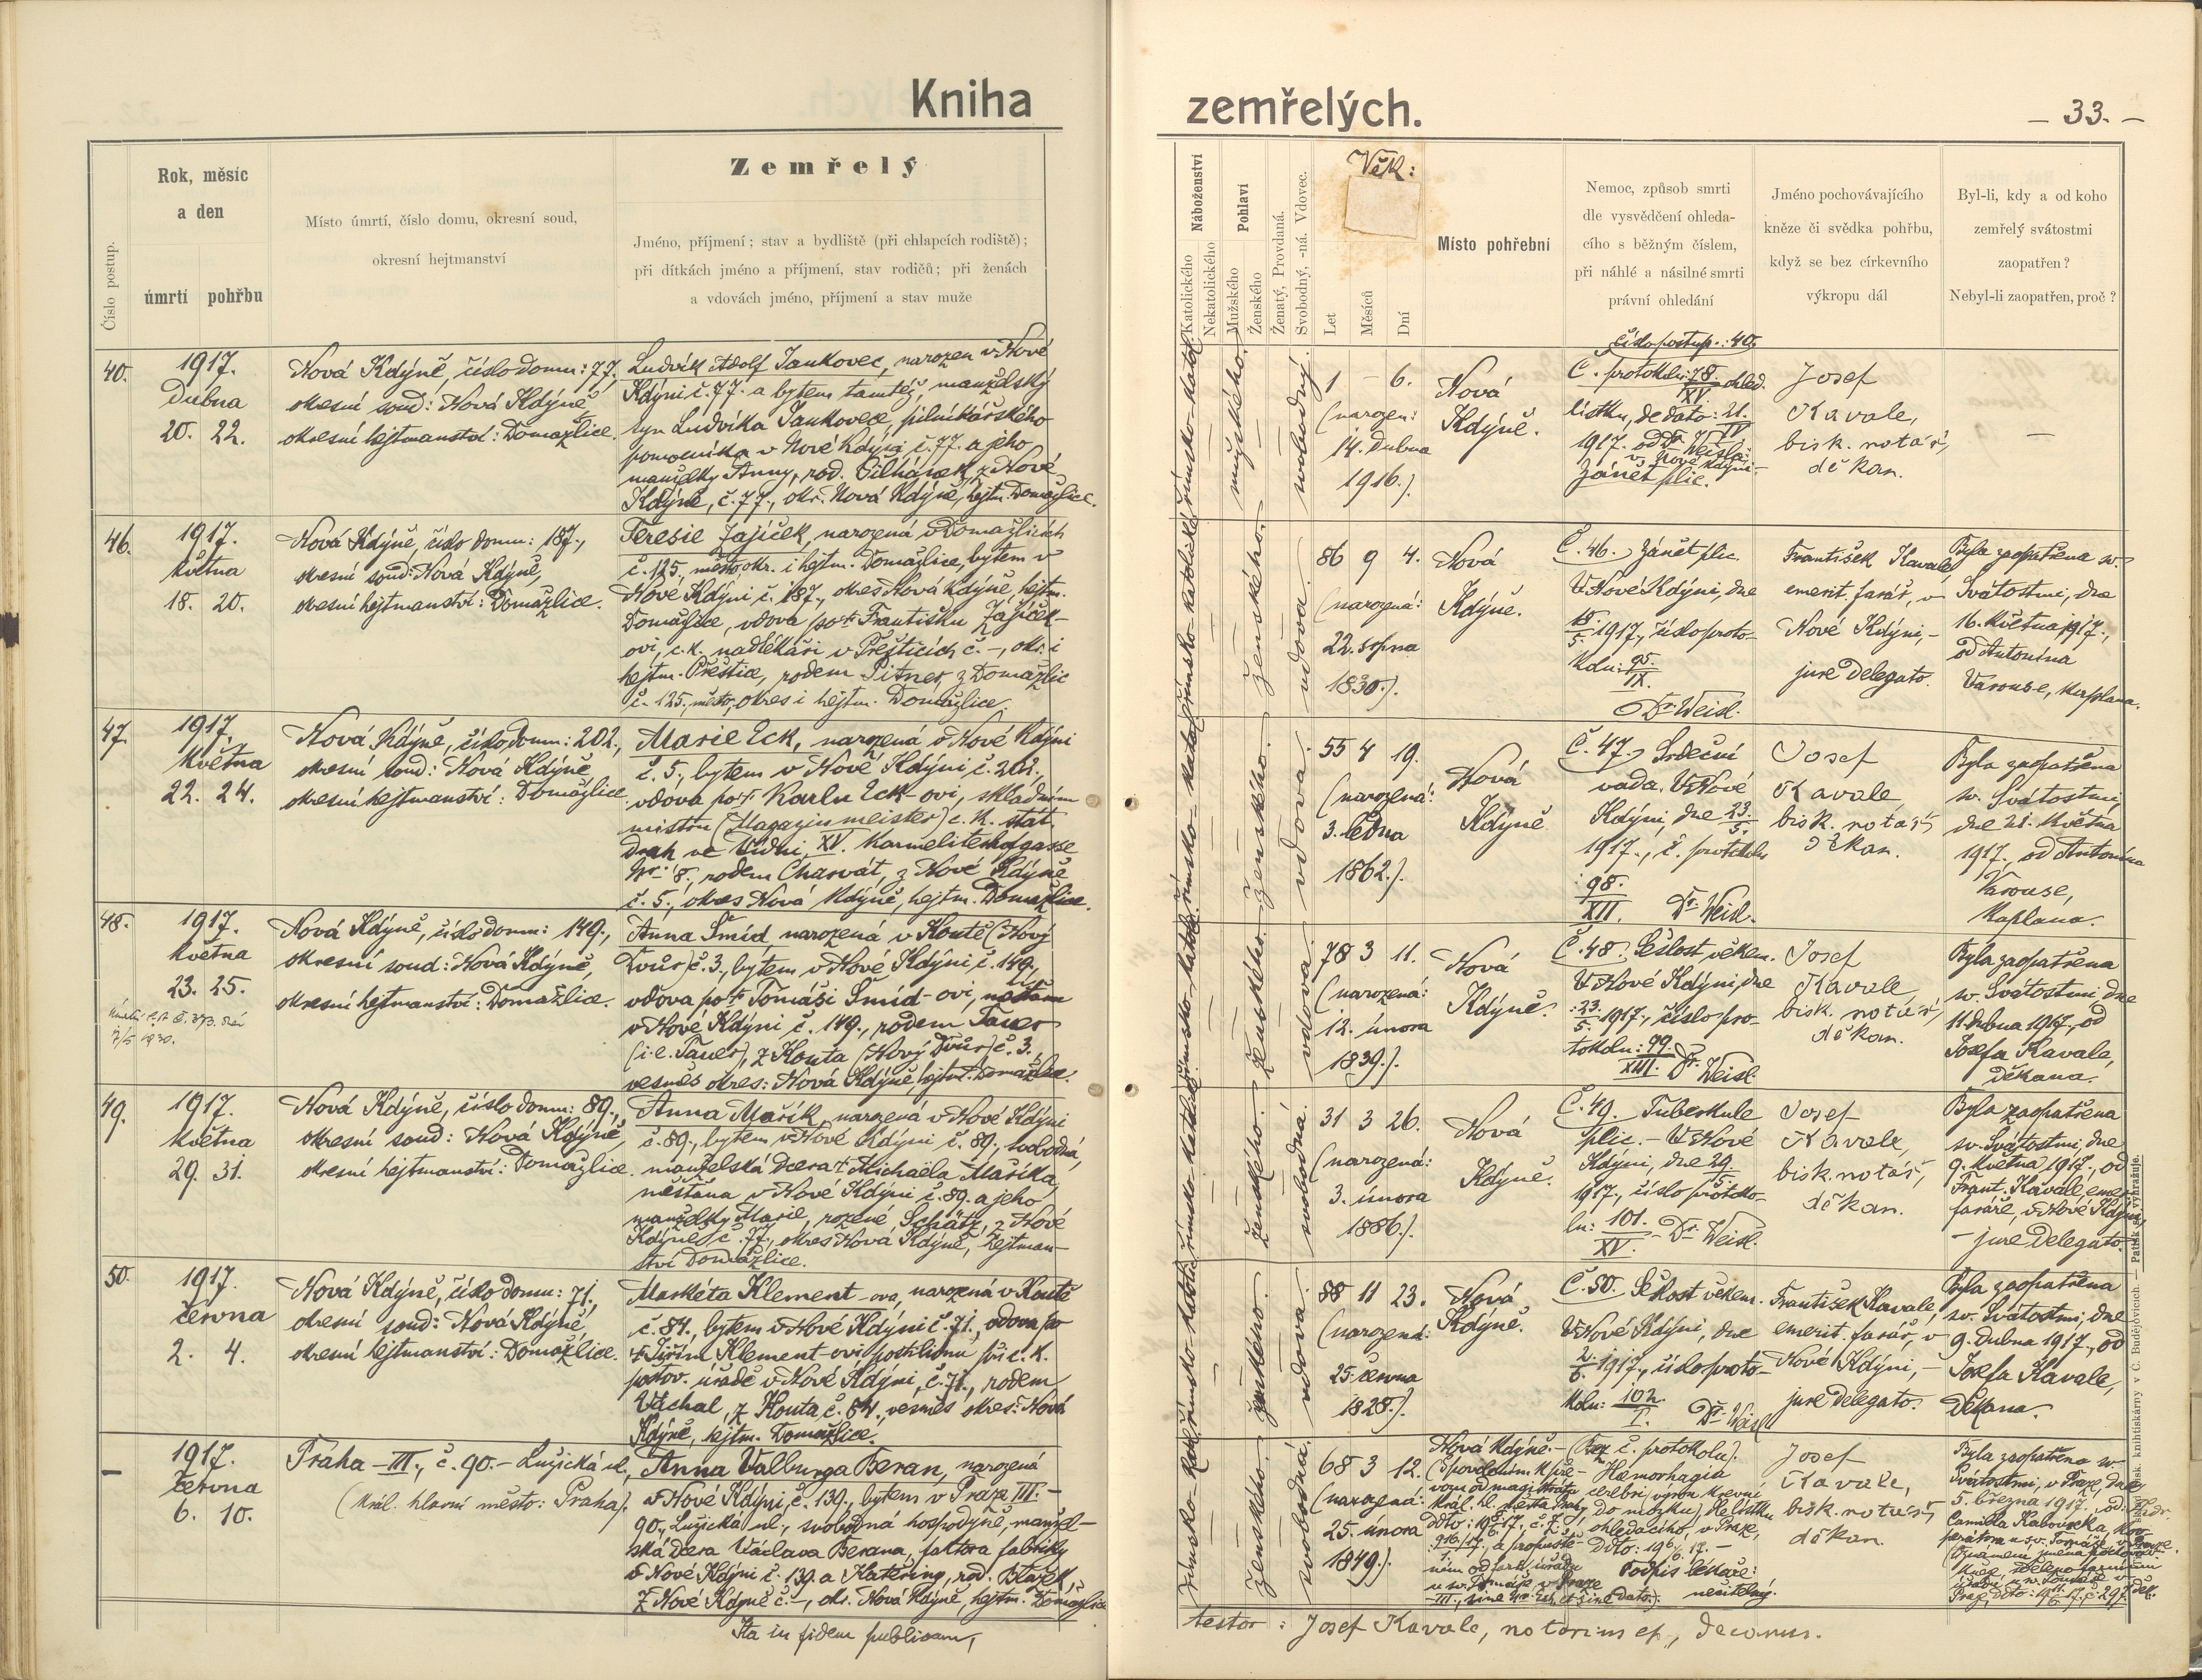 Kniha
zemřelých.
— 33. —
Číslo postup.
Rok, měsíc
a den
úmrtí pohřbu
Místo úmrtí, číslo domu, okresní soud,
okresní hejtmanství
Zemřelý
Jméno, příjmení; stav a bydliště (při chlapcích rodiště);
při dítkách jméno a příjmení, stav rodičů; při ženách
a vdovách jméno, příjmení a stav muže
Náboženství
Katolického
Nekatolického
Pohlaví
Mužského
Ženského
Ženatý, Provdaná.
Svobodný, -ná. Vdovec.
Věk:
Let
Měsíců
Dní
Místo pohřební
Nemoc, způsob smrti
dle vysvědčení ohleda-
cího s běžným číslem,
při náhlé a násilné smrti
právní ohledání
Jméno pochovávajícího
kněze či svědka pohřbu,
když se bez církevního
výkropu dál
Byl-li, kdy a od koho
zemřelý svátostmi
zaopatřen?
Nebyl-li zaopatřen, proč?
40.
1917.
Dubna
20. 22.
Nová Kdýně, číslo domu: 77,
okresní soud: Nová Kdýně,
okresní hejtmanství: Domažlice.
Ludvík Adolf Jankovec, narozen v Nové
Kdýni č. 77. a bytem tamtéž, manželský
syn Ludvíka Jankovce, pilníkářského
pomocníka v Nové Kdýni č. 77. a jeho
manželky Anny, rod. z Nové
Kdýně, č. 77., okr. Nová Kdýně, hejtm. Domažlice.
římsko-katol.
mužského.
svobodný.
1 — 6.
(narozen:
14. Dubna
1916.)
Nová
Kdýně.
číslo postup.: 40.
Č. protokolu: 78. ohled.
XV.
lístku, de dato: 21.
IV
1917. od Dr. Weisla:
v Nové Kdýni —
Zánět plic.
Josef
Kavale,
bisk. notář,
děkan.
—
46.
1917.
května
18. 20.
Nová Kdýně, číslo domu: 187.,
okresní soud: Nová Kdýně,
okresní hejtmanství: Domažlice.
Teresie Zajíček, narozená v Domažlicích
č. 125., město, okr. i hejtm. Domažlice, bytem v
Nové Kdýni č. 187., okres Nová Kdýně, hejtm.
Domažlice, vdova po † Františku Zajíček-
ovi, c. k. nadlékaři v Přešticích č. —, okr. i
hejtm. Přeštice, rodem Pitner, z Domažlic
č. 125., město, okres i hejtm. Domažlice.
římsko-katolické
ženského.
vdova.
86 9 4.
(narozená:
22. srpna
1830.)
Nová
Kdýně.
Č. 46. Zánět plic.
V Nové Kdýni, dne
18.
5. 1917., číslo proto-
kolu: 95.
IX.
Dr. Weisl.
František Kavale
emerit. farář, v
Nové Kdýni, —
jure delegato.
Byla zaopatřena sv.
Svátostmi, dne
16. května 1917.,
od Antonína
Varouse, kaplana.
47.
1917.
května
22. 24.
Nová Kdýně, číslo domu: 202.,
okresní soud: Nová Kdýně
okresní hejtmanství: Domažlice.
Marie Eck, narozená v Nové Kdýni
č. 5., bytem v Nové Kdýni č. 202.,
vdova po † Karlu Eck-ovi, skladním
mistru (Magazinmeister) c. k. stát.
drah ve Vídni, XV. Karmelitenhofgasse
Nr. 8., rodem Charvát, z Nové Kdýně
č. 5., okres Nová Kdýně, hejtm. Domažlice.
římsko-katol.
ženského.
vdova.
55 4 19.
(narozená:
3. ledna
1862.)
Nová
Kdýně
Č. 47. Srdeční
vada. V Nové
Kdýni, dne 23.
5.
1917., č. protokolu
: 98.
XII. Dr. Weisl.
Josef
Kavale,
bisk. notář,
děkan.
Byla zaopatřena
sv. Svátostmi,
dne 21. května
1917. od Antonína
Varouse,
Kaplana.
48.
1917.
května
23. 25.
Nová Kdýně, číslo domu: 149.,
okresní soud: Nová Kdýně,
okresní hejtmanství: Domažlice.
Anna Šmíd, narozená v Koutě (Nový
Dvůr) č. 3., bytem v Nové Kdýni č. 149.,
vdova po † Tomáši Šmíd-ovi,
v Nové Kdýni č. 149., rodem Tauer
(i. e. Tauer), z Kouta (Nový Dvůr) č. 3.
vesměs okres: Nová Kdýně, hejtm. Domažlice.
římsko-katol.
ženského.
vdova.
78 3 11.
(narozená:
12. února
1839.)
Nová
Kdýně.
Č. 48. Sešlost věkem.
V Nové Kdýni, dne
23.
5. 1917., číslo pro-
tokolu: 99.
XIII. Dr. Weisl.
Josef
Kavale,
bisk. notář,
děkan.
Byla zaopatřena
sv. Svátostmi, dne
11. dubna 1917., od
Josefa Kavale,
děkana.
49.
1917.
května
29. 31.
Nová Kdýně, číslo domu: 89.,
okresní soud: Nová Kdýně,
okresní hejtmanství: Domažlice.
Anna Mařík, narozená v Nové Kdýni
č. 89., bytem v Nové Kdýni č. 89., svobodná,
manželská dcera † Michaela Maříka,
měšťana v Nové Kdýni č. 89. a jeho
manželky Marie, rozené Schätz, z Nové
Kdýně č. 77., okres Nová Kdýně, hejtman-
ství Domažlice.
římsko-katol.
ženského.
svobodná.
31 3 26.
(narozená:
3. února
1886.)
Nová
Kdýně.
Č. 49. Tuberkule
plic. — V Nové
Kdýni, dne 29.
5.
1917., číslo protoko-
lu: 101. — Dr. Weisl.
XV.
Josef
Kavale,
bisk. notář,
děkan.
Byla zaopatřena
sv. Svátostmi, dne
9. května 1917., od
Frant. Kavale, emer.
faráře, v Nové Kdýni,
— jure delegato.
50.
1917.
června
2. 4.
Nová Kdýně, číslo domu: 71.,
okresní soud: Nová Kdýně,
okresní hejtmanství: Domažlice.
Markéta Klement-ova, narozená v Koutě
č. 84., bytem v Nové Kdýni č. 71., vdova po
† Jiřím Klement-ovi, postilionu při c. k.
poštov. úřadě v Nové Kdýni, č. 71., rodem
Váchal, z Kouta č. 84., vesměs okres: Nová
Kdýně, hejtm. Domažlice.
římsko-katol.
ženského.
vdova.
88 11 23.
(narozená:
25. června
1828.)
Nová
Kdýně.
Č. 50. Sešlost věkem.
V Nové Kdýni, dne
2.
6. 1917., číslo proto-
kolu: 102.
I. Dr. Weisl
František Kavale,
emerit. farář, v
Nové Kdýni, —
jure delegato.
Byla zaopatřena
sv. Svátostmi, dne
9. dubna 1917., od
Josefa Kavale,
děkana.
—
1917.
června
6. 10.
Praha — III., č. 90. — Lužická ul.,
(král. hlavní město: Praha).
Anna Valburga Beran, narozená
v Nové Kdýni č. 139., bytem v Praze III. —
90., Lužická ul., svobodná hospodyně, manžel-
ská dcera Václava Berana, faktora fabriky
v Nové Kdýni č. 139. a Kateřiny, rod.
z Nové Kdýně č. —, okr. Nová Kdýně, hejtm. Domažlice
římsko-katol.
ženského.
svobodná.
68 3 12.
(narozená:
25. února
1849.)
Nová Kdýně. —
(Bez č. protokolu).
Hæmorhagia
cerebri,
Podpis lékaře:
nečitelný.
Josef
Kavale,
bisk. notář,
děkan.
Byla zaopatřena sv.
Svátostmi, v Praze, dne
5. března 1917., od:
Ita in fidem publicam,
testor: Josef Kavale, notarius ep., decanus.